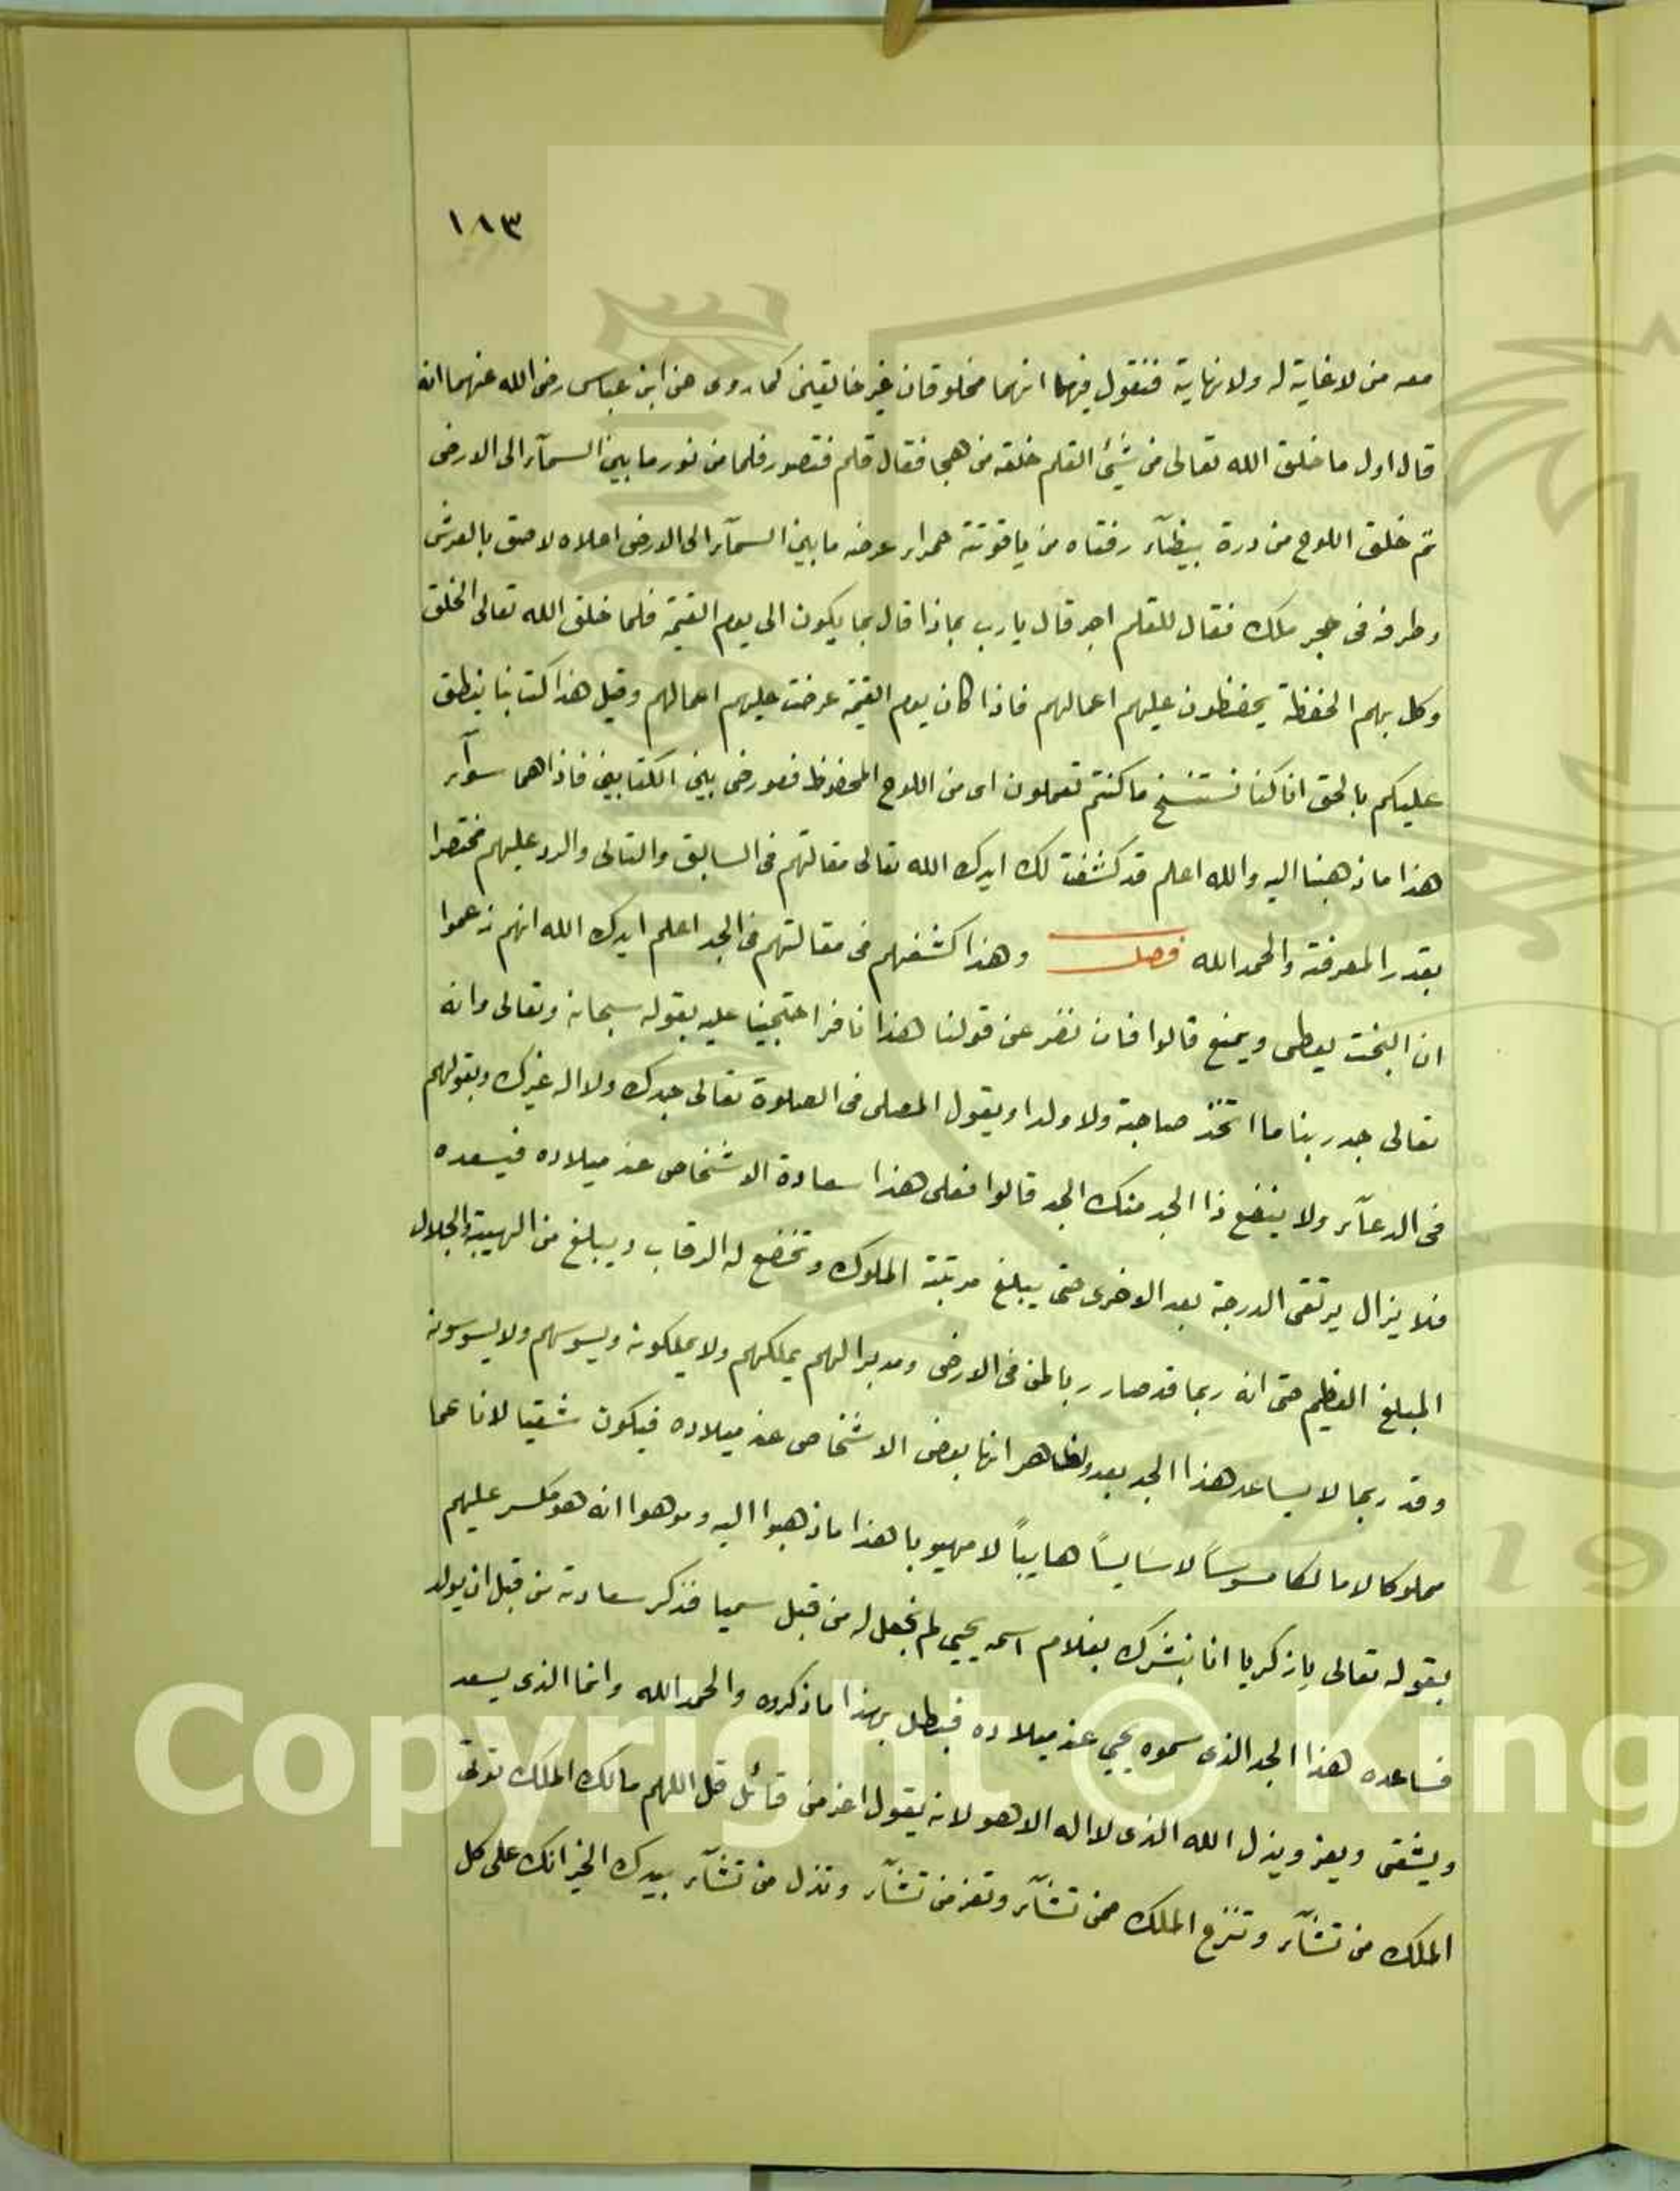 ١٨٣
معه من لا غاية له ولا نهاية فنقول فيهما انهما مخلوقان غير خالقين كما روى عن ابن عباس رضى الله عنهما انه
قال اول ما خلق الله تعالى من شيئ القلم خلقه من هجا فقال قلم فتصور قلما من نور ما بين السمآء الى الارض
ثم خلق اللوح من درة بيظآء رفتاه من ياقوتة حمراء عرضه ما بين السمآء الى الارض اعلاه لاصق بالعرش
وطرفه فى حجر ملك فقال للقلم اجر قال يا رب بماذا قال بما يكون الى يوم القيمة فلما خلق الله تعالى الخلق
وكل بهم الحفظة يحفظون عليهم اعمالهم فاذا كان يوم القيمة عرضت عليهم اعمالهم وقيل هذا كتابنا ينطق
عليكم بالحق انا كنا نستنسخ ما كنتم تعملون اى من اللوح المحفوظ فعورض بين الكتابين فاذا هما سوآء
هذا ما ذهبنا اليه والله اعلم قد كشفت لك ايدك الله تعالى مقالتهم فى السابق والتالى والرد عليهم مختصرا
بقدر المعرفة والحمد الله فصل وهذا كشفهم فى مقالتهم فى الجد اعلم ايدك الله انهم زعموا
ان البخت يعطى ويمنع قالوا فان نفر عن قولنا هذا نافر احتجينا عليه بقوله سبحانه وتعالى وانه
تعالى جد ربنا ما اتخذ صاحبة ولا ولدا ويقول المصلى فى الصلوة تعالى جدك ولا اله غيرك وبقولهم
فى الدعآء ولا ينفع ذا الجد منك الجد قالوا فعلى هذا سعادة الاشخاص عند ميلاده فيسعده
فلا يزال يرتقى الدرجة بعد الاخرى حتى يبلغ مرتبة الملوك وتخضع له الرقاب ويبلغ من الهيبة والجلال
المبلغ العظيم حتى انه ربما قد صار ربا طن فى الارض ومدبرا لهم يملكهم ولا يملكونه ويسوسهم ولا يسوسونه
وقد ربما لا يساعد هذا الجد بعد ولظاهر انها بعض الاشخاص عند ميلاده فيكون شقيا لانا عما
مملوكا لا مالكا مسوسًا لا سايسًا هايبًا لا مهيوبا هذا ما ذهبوا اليه وموهوا انه هو مكسر عليهم
بقوله تعالى يا زكريا انا نبشرك بغلام اسمه يحيى لم نجعل له من قبل سميا فذكر سعادته من قبل ان يولد
فساعده هذا الجد الذى سموه يحيى عند ميلاده فبطل بهذا ما ذكروه والحمد الله وانما الذى يسعد
ويشقى ويعز ويذل الله الذى لا اله الا هو لانه يقول اعز من قائل قل اللهم مالك الملك توتى
الملك من تشآء وتنزع الملك ممن تشآء وتعز من تشآء وتذل من تشآء بيدك الخير انك على كل
Copyright © King
19